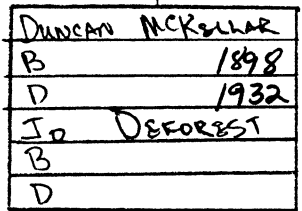 DUNCAN MCKELLAR
B 1898
D 1932
JO DEFOREST
B
D